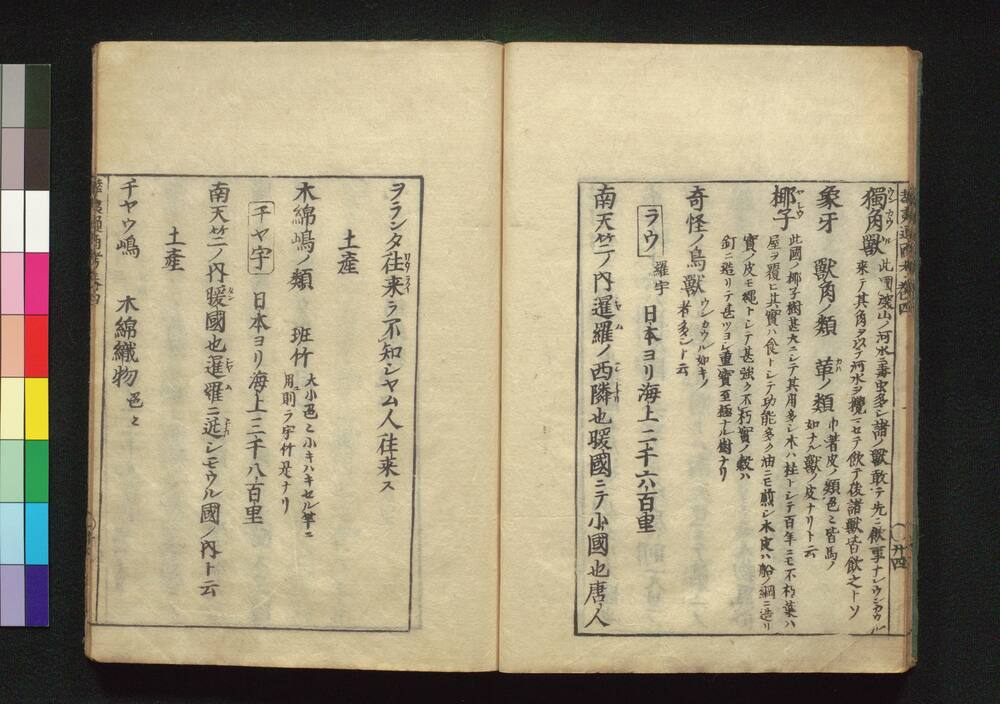 獨角獸 此國深山ノ河水ニ毒虫多シ諸ノ獸敢テ先ニ飲事ナシウンカウル
ウンカウル
来テ其角ヲ以テ河水ヲ攪マセテ飲テ後諸獸皆飲之トソ
象牙 獸角ノ類 革ノ類 巾著皮ノ類色〻皆馬ノ
カハ
如ナル獸ノ皮ナリト云
椰子 此國ノ椰子樹甚大ニシテ其用多シ木ハ柱トシテ百年ニモ不朽葉ハ
ヤシウ
屋ヲ覆ヒ其實ハ食トシテ功能多ク油ニモ煎シ木皮ハ船ノ綱ニ造リ
實ノ皮モ縄トシテ甚強ク不朽實ノ殻ハ
釘ニ造リテ甚ツヨシ重寳至極ナル樹ナリ
奇怪ノ鳥獸 ウンカウル如キノ
者多シト云
ラウ 羅宇 日本ヨリ海上二千六百里
南天竺ノ内暹羅ノ西隣也暖國ニテ小國也唐人
華夷通商考巻四
廿四
ヲランタ往来ヲ不知シヤム人往来ス
土産
木綿嶋ノ類 班竹 大小色〻小キハキセル竿ニ
用ユ則ラウ竹是ナリ
チヤ宇 日本ヨリ海上三千八百里
南天竺ノ内暖國也暹羅ニ近シモウル國ノ内ト云
土産
チヤウ嶋 木綿織物 色〻